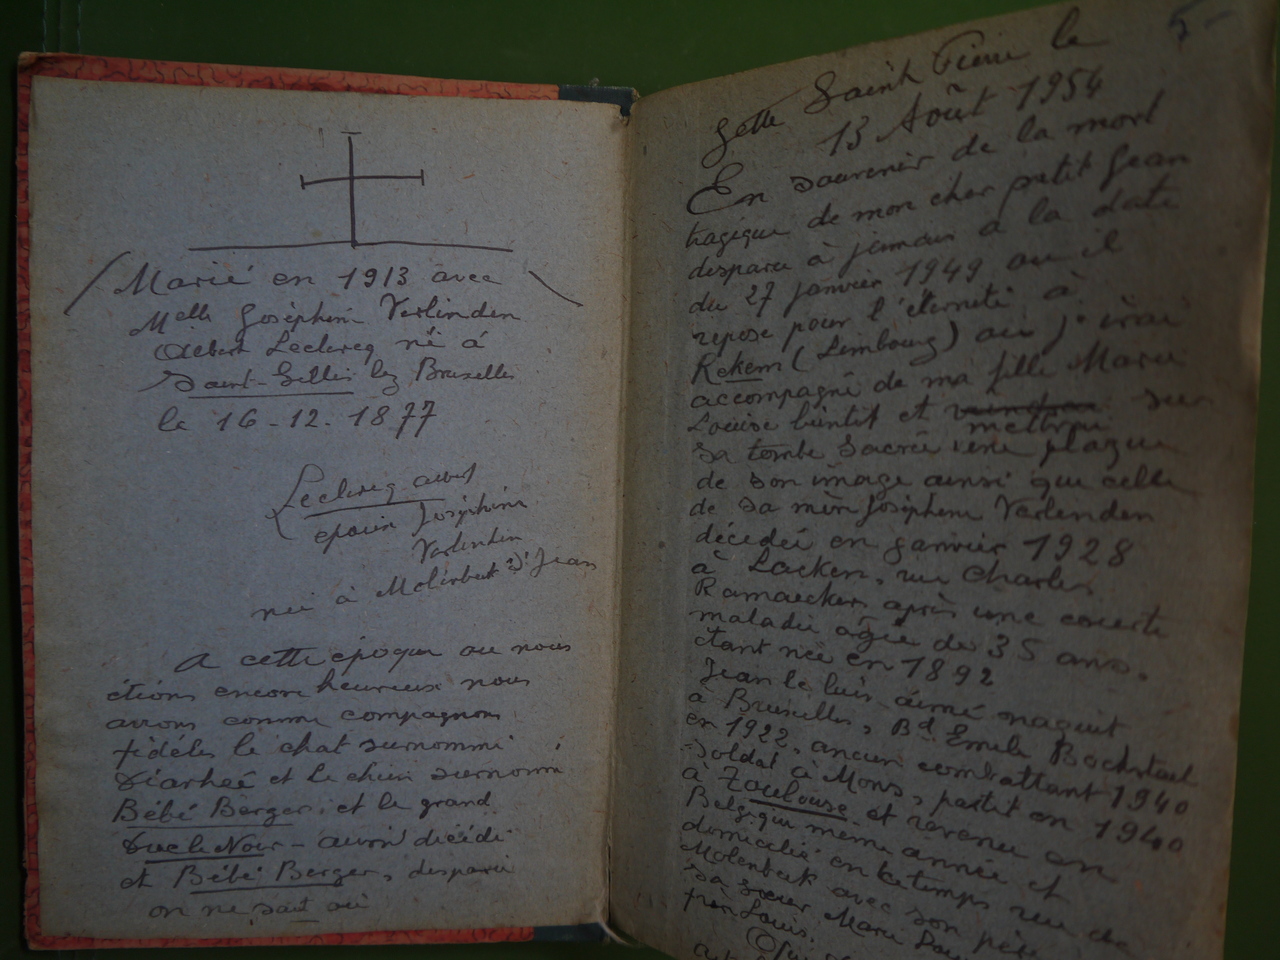 Marié en 1913 avec
Melle Joséphine Verlinden
Albert Leclercq né à
Saint-Gilles lez Bruxelles
le 16-12-1877
Leclercq Albert
époux Joséphine
Verlinden
née à Molenbeek St Jean
A cette époque ou nous
étions encore heureux nous
avions comme compagnons
fidèles le chat surnommé
et le chien surnommé
Bébé Berger, et le grand
Duc le Noir - aussi décédé
et Bébé Berger, disparu
on ne sait où
5-
Jette Saint Pierre le
13 Août 1954
En souvenir de la mort
tragique de mon cher petit Jean
disparu à jamais à la date
du 27 janvier 1949 ou il
repose pour l'éternité à
Rekem (Limbourg) ou j'irai
accompagné de ma fille Marie
Louise bientôt et mettrai sur
sa tombe sacrée une plaque
de son image ainsi que celle
de sa mère Joséphine Verlinden
décédée en janvier 1928
à Laeken, rue Charles
Ramaekers après une courte
maladie agée de 35 ans.
étant née en 1892
Jean le bien aimé naquit
à Bruxelles, Bd Emile Bockstael
en 1922, ancien combattant 1940
soldat à Mons, partit en 1940
à Toulouse et revenu en
Belgique même année et
domicilié en ce temps rue de
Molenbeek avec son père
sa sœur Marie
frère Louis.